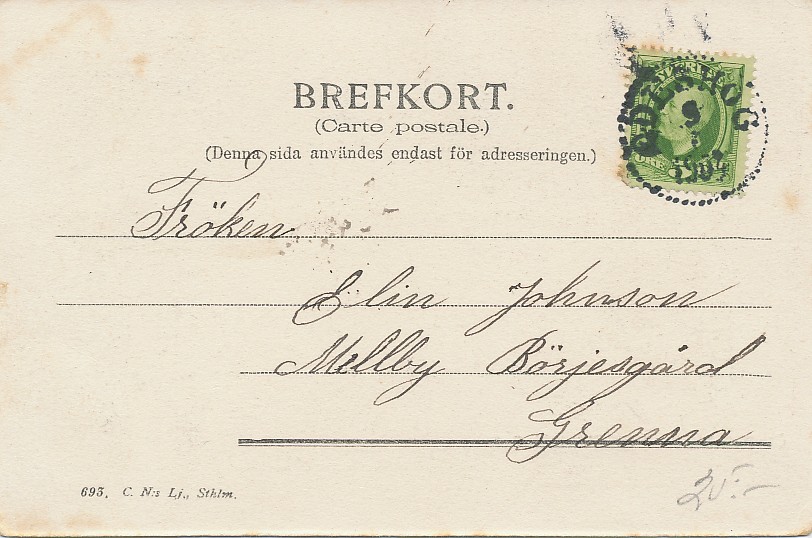 BREFKORT.
(Carte postale.)
(Denna sida användes endast för adresseringen.)
Fröken
Elin Johnson
Mellby Börjesgård
Grenna
693. C. N:s Lj., Sthlm.
20:-